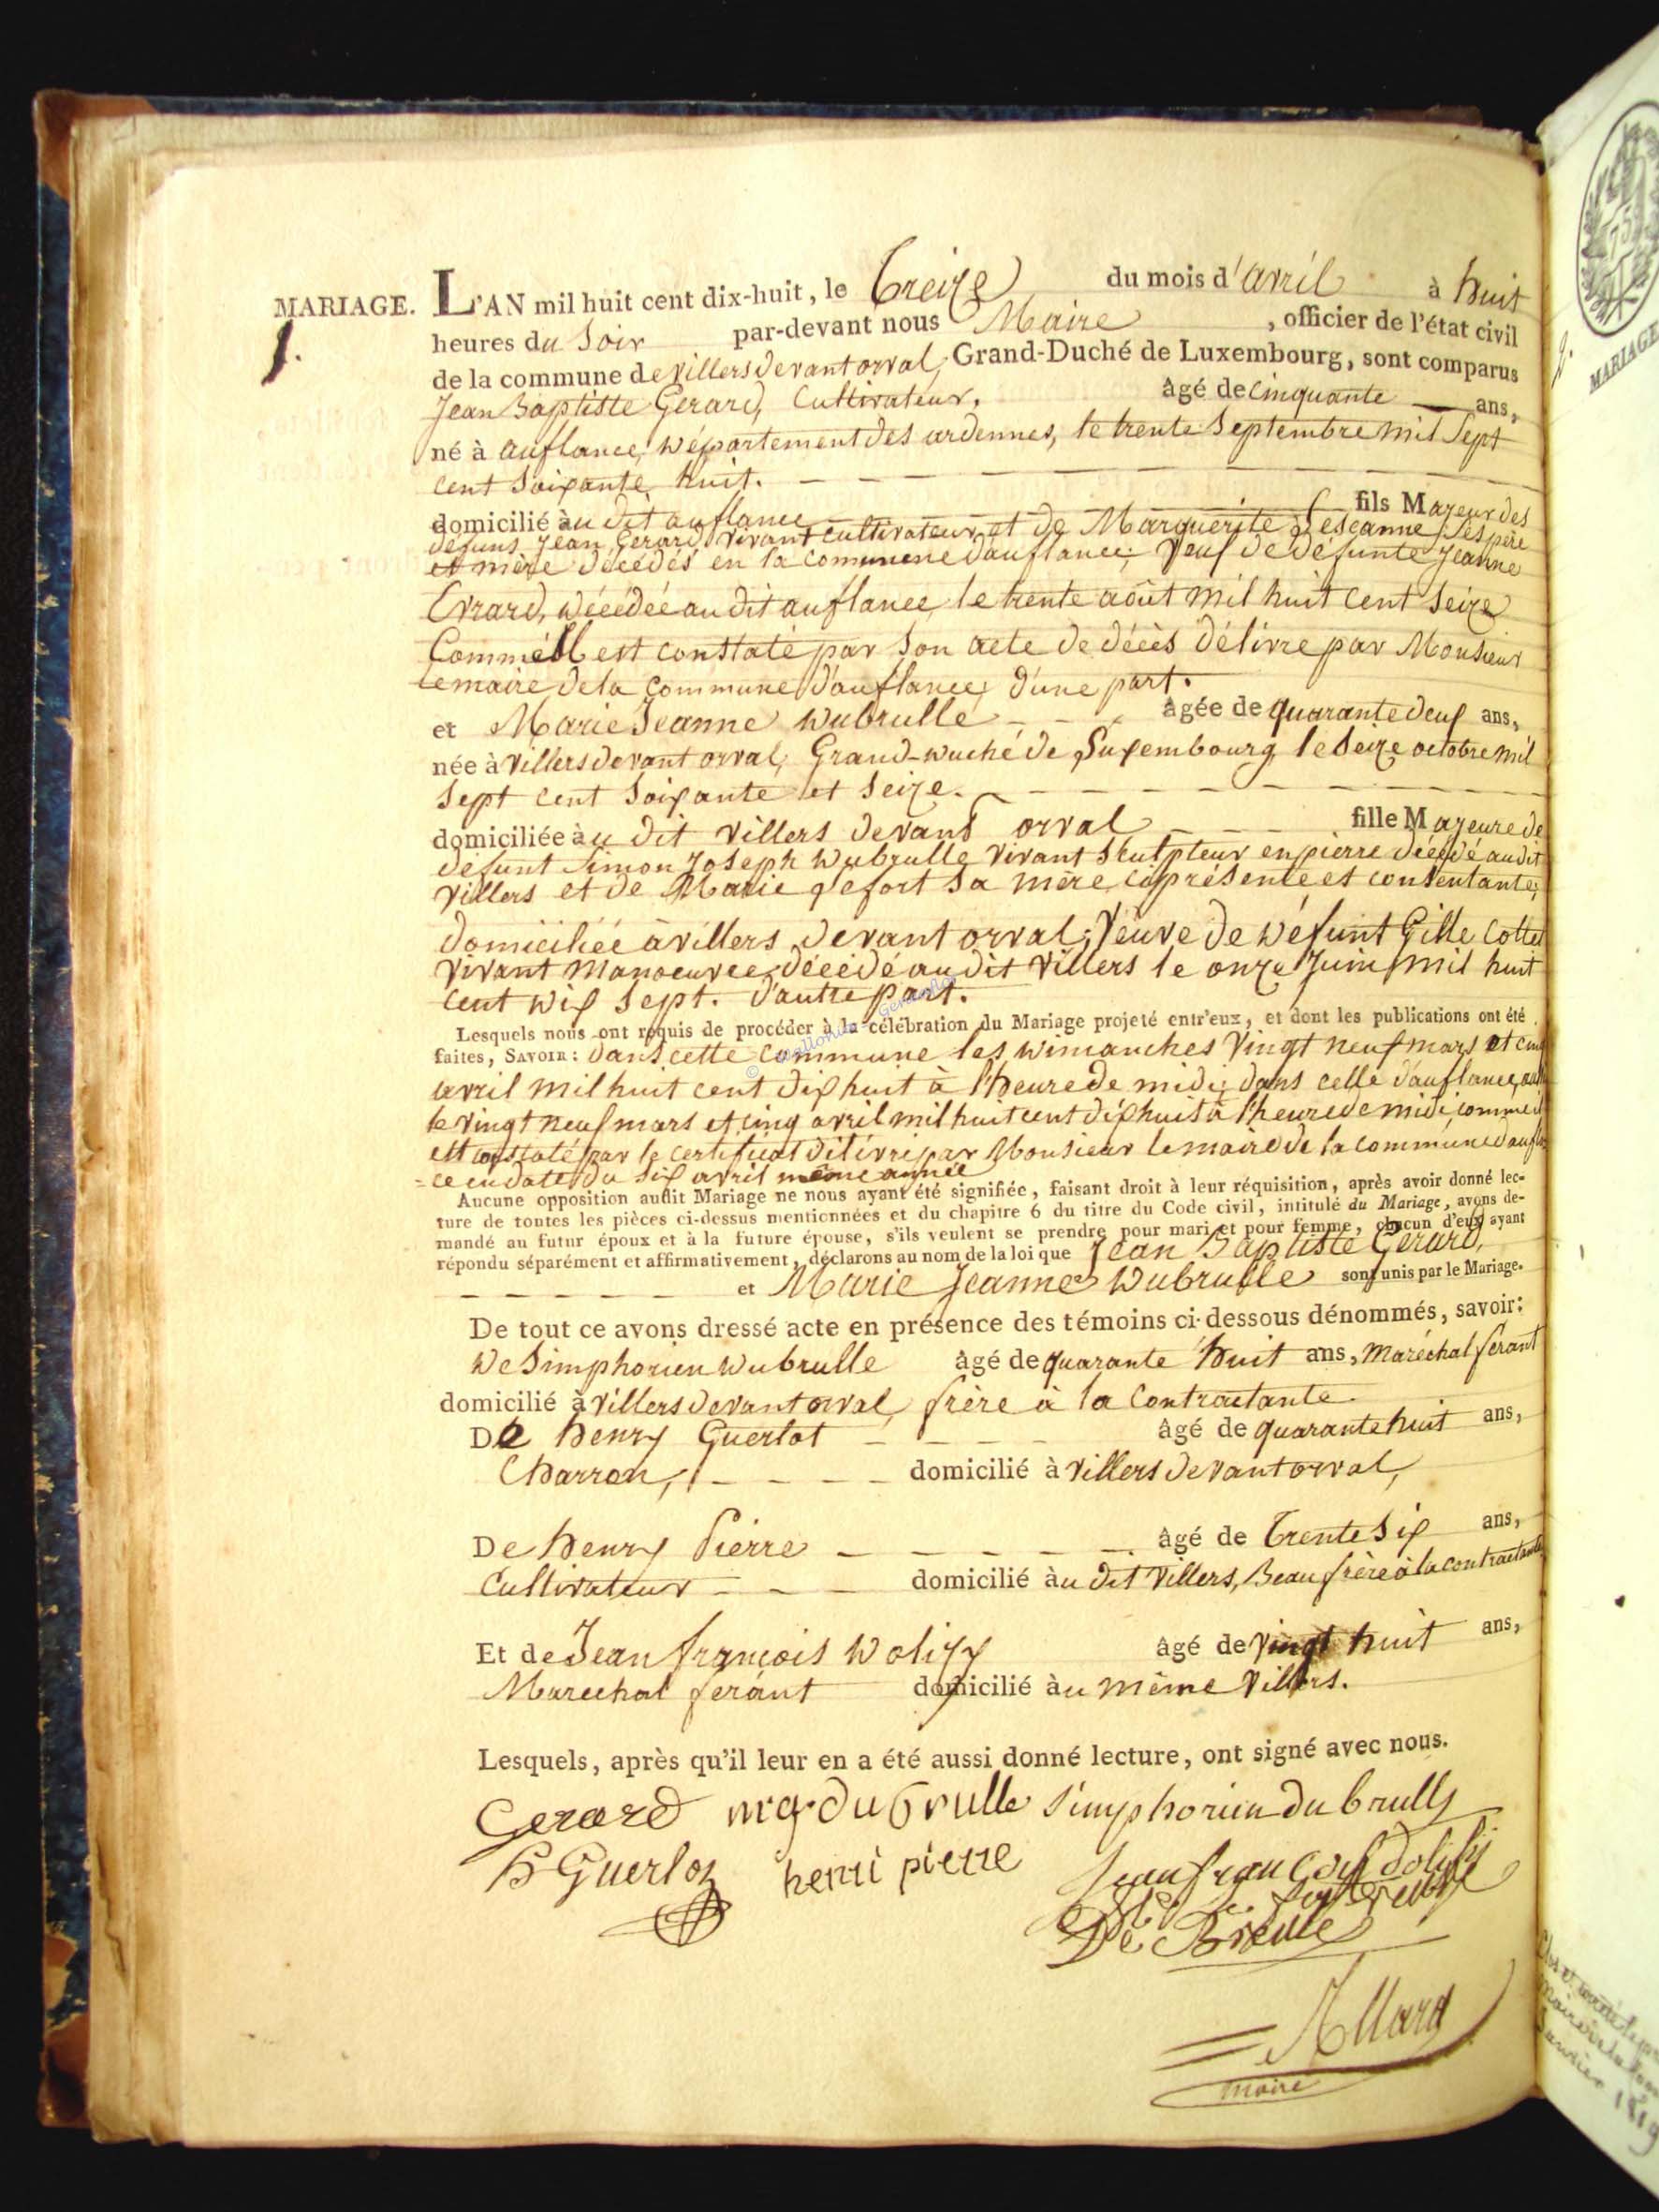 MARIAGE. L'AN mil huit cent dix-huit, le treize du mois d'avril à huit
1. heures du Soir par-devant nous Maire , officier de l'état civil
de la commune de villers devant orval, Grand-Duché de Luxembourg, sont comparus
Jean Baptiste Gerard, Cultivateur, âgé de cinquante ans,
né à auflance, Département des ardennes, le trente Septembre mil Sept
cent Soixante huit.
domicilié àu dit auflance fils Majeur des
defuns Jean Gerard vivant cultivateur et de Marguerite Ses père
et mère décédés en la commune d'auflance; Veuf de défunte Jeanne
Errard, Décédée au dit auflance le trente août mil huit cent Seize
Comme il est constaté par Son acte de décès délivre par Monsieur
lemaire de la commune d'auflance, d'une part.
et Marie Jeanne Dubrulle âgée de quarante deux ans,
née à villers devant orval, Grand-Duché de Luxembourg, le Seize octobre mil
Sept cent Soixante et Seize.
domiciliée àu dit villers devant orval fille Majeure de
defunt Simon Joseph Dubrulle vivant Sculpteur en pierre décédé audit
villers et de Marie Sa mère, ci présente et consentante;
domiciliée à villers devant orval; Veuve de Défunt Gille Collet
vivant manoeuvre décédé au dit villers le onze Juin mil huit
cent Dix Sept. d'autre part.
Lesquels nous ont requis de procéder à la célébration du Mariage projeté entr'eux, et dont les publications ont été
faites, SAVOIR: dans cette commune les Dimanches vingt neuf mars et cinq
avril mil huit cent dix huit à l'heure de midi; dans celle d'auflance,
le vingt neuf mars et cinq avril mil huit cent dix huit à l'heure de midi comme il
est constaté par le certificat délivré par Monsieur le maire de la commune d'auflan
=ce en date du Six avril même année
Aucune opposition audit Mariage ne nous ayant été signifiée, faisant droit à leur réquisition, après avoir donné lec-
ture de toutes les pièces ci-dessus mentionnées et du chapitre 6 du titre du Code civil, intitulé du Mariage, avons de-
mandé au futur époux et à la future épouse, s'ils veulent se prendre pour mari et pour femme, chacun d'eux ayant
répondu séparément et affirmativement, déclarons au nom de la loi que Jean Baptiste Gerard,
et Marie Jeanne Dubrulle sont unis par le Mariage.
De tout ce avons dressé acte en présence des témoins ci-dessous dénommés, savoir:
De Simphorien Dubrulle âgé de quarante huit ans, Maréchal ferant
domicilié à villers devant orval, frère à la contractante.
De henry Guerlot âgé de quarante huit ans,
Charron, domicilié à villers devant orval,
De henry Pierre âgé de trente Six ans,
Cultivateur domicilié àu dit villers, Beau frère à la contractante
Et de Jean françois Dolizy âgé de vingt huit ans,
Marechal ferant domicilié àu même villers.
Lesquels, après qu'il leur en a été aussi donné lecture, ont signé avec nous.
Gerard mg dubrulle Simphorien dubrulle
h Guerlot henri pierre Jean françois dolizy
Allard
maire
© Wallonia - Geneanet
MARIAGE
1819